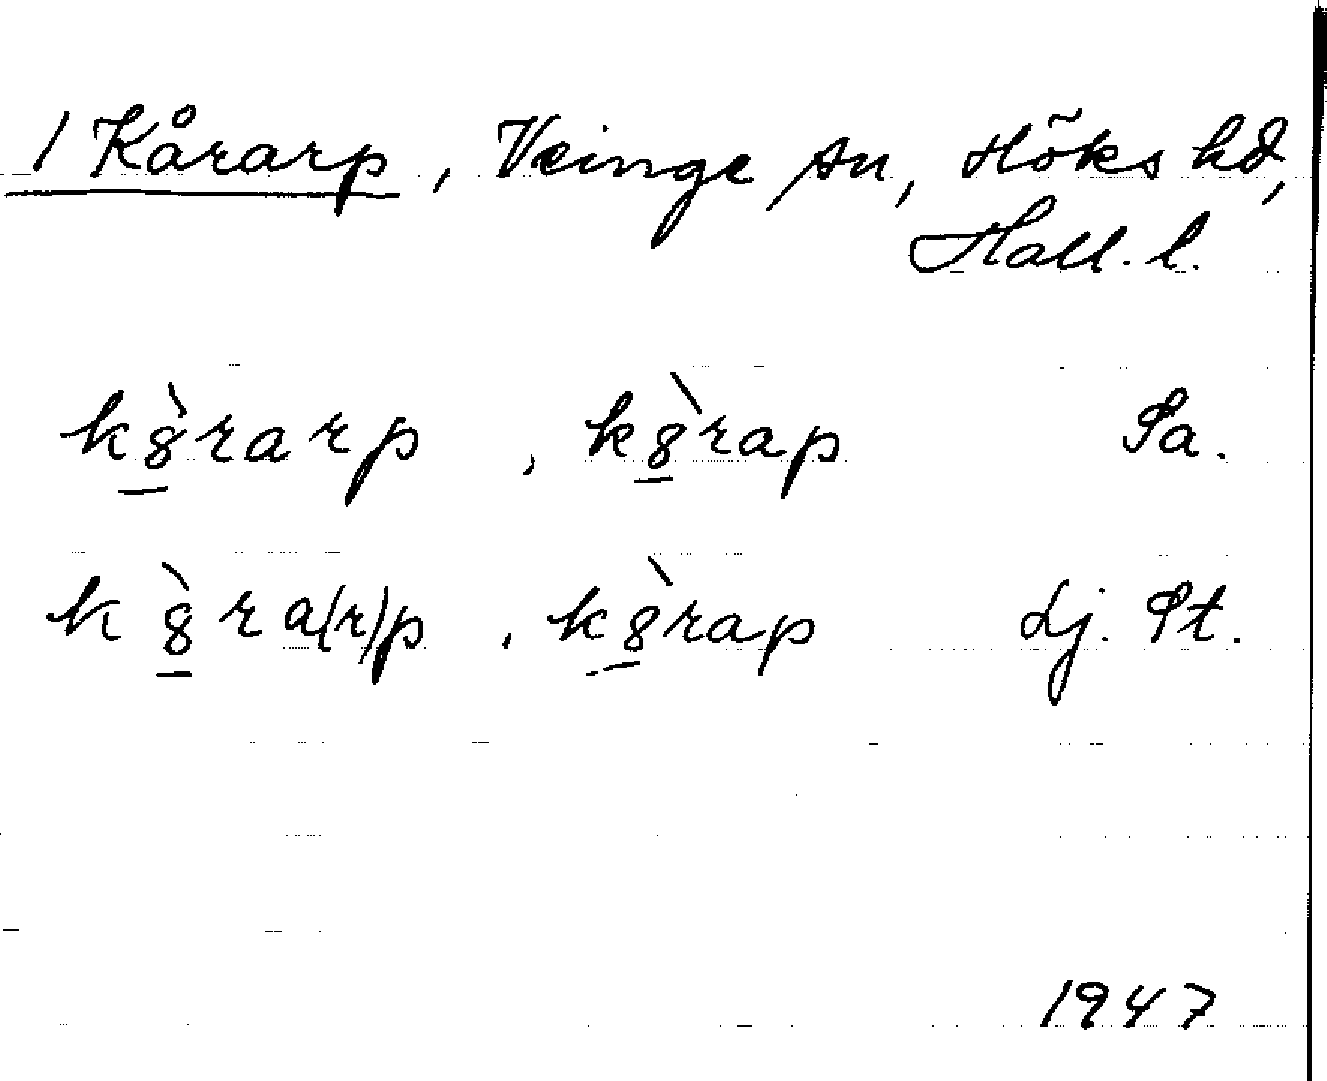 1 Kårarp, Veinge sn, Höks hd,
Hall. l.
k8̲̀rarp, k8̲̀rap Sa.
k8̲̀ra(r)p, k8̲̀rap Lj. St.
1947